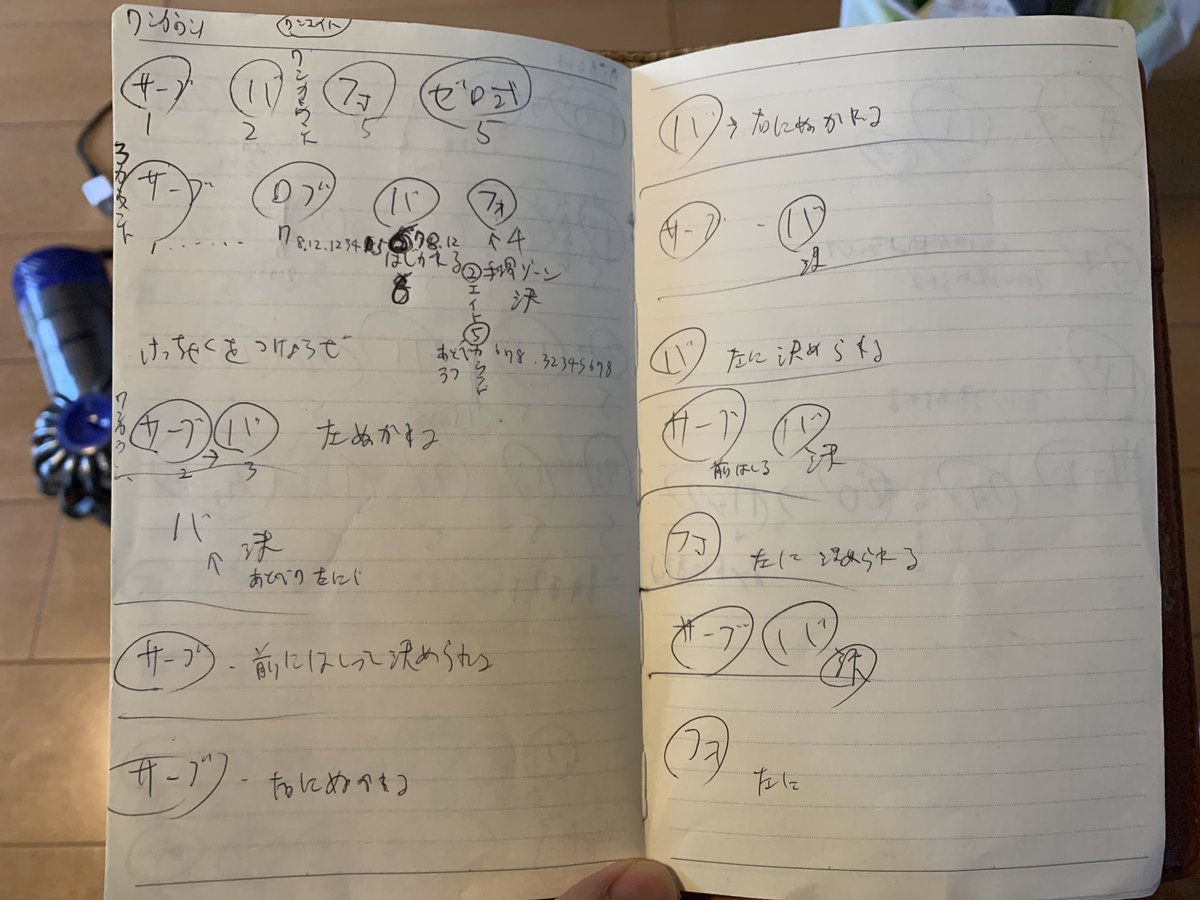 ワンカウント ワンエイト
サーブ バ ワンカウント フォ ゼロ式
1 2 5 5
3カウント サーブ ロブ バ フォ
1...... 7 8.12.1234 78.12 ↑4
はしかれる ②エイト 手塚ゾーン
8 決
けっちゃくをつけようぜ ⑤カウント 678.32345678
サーブ → バ 左ぬかれる
2 3
バ
↑ 決
左にじ
サーブ - 前にはしって決められる
サーブ - 右にぬかれる
バ → 右にぬかれる
サーブ - バ
決
バ 左に決められる
サーブ バ
前はしる 決
フォ 左に決められる
サーブ バ
決
フォ
左に